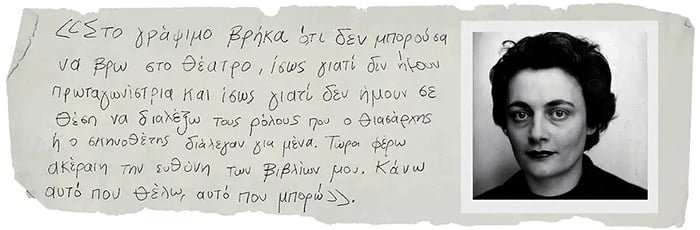 «Στο γράψιμο βρήκα ότι δεν μπορούσα
να βρω στο θέατρο, ίσως γιατί δεν ήμουν
πρωταγωνίστρια και ίσως γιατί δεν ήμουν σε
θέση να διαλέξω τους ρόλους που ο θιασάρχης
ή ο σκηνοθέτης διάλεγαν για μένα. Τώρα φέρω
ακέραιη την ευθύνη των βιβλίων μου. Κάνω
αυτό που θέλω, αυτό που μπορώ».